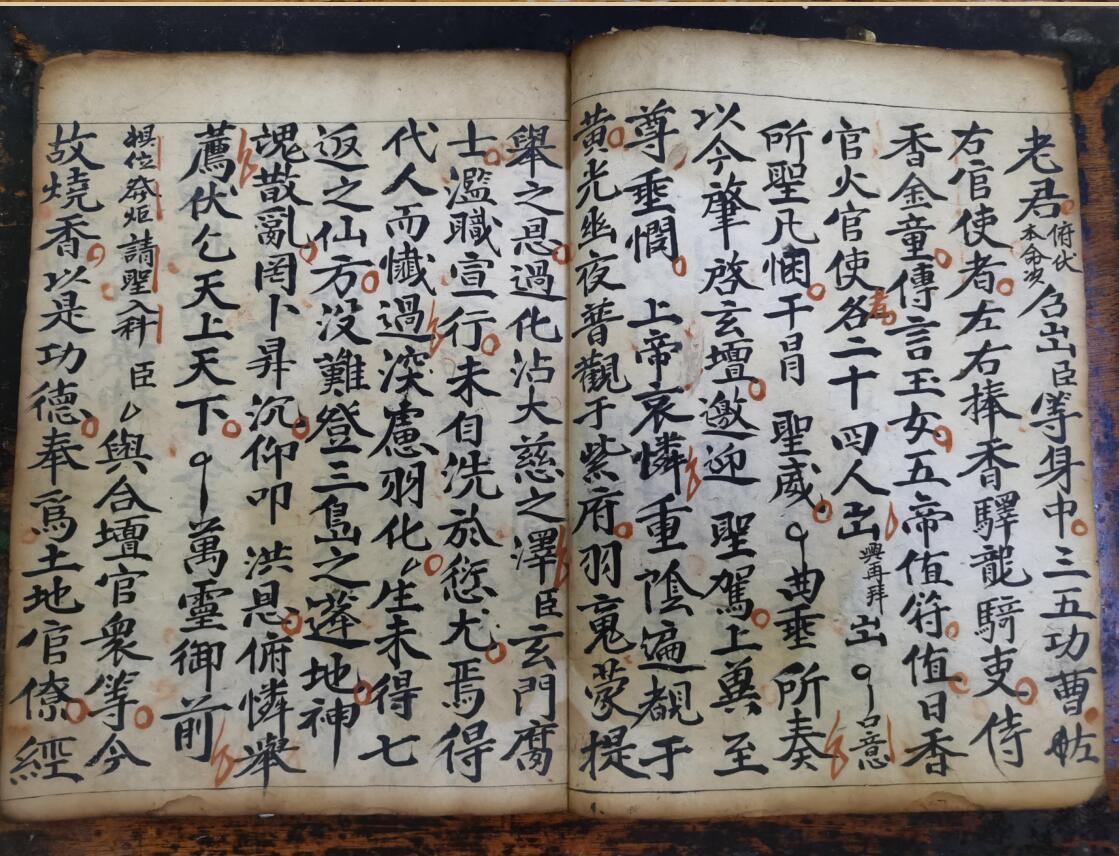 老君俯伏本命次召出臣等身中三五功曹左
右官使者左右捧香驛龍騎吏侍
香金童傳言玉女五帝值符值日香
官火官使各二十四人出興再拜出 口意
所聖凡悃干冒 聖威 曲垂所奏
以今肇啓玄壇邀迎 聖駕上冀至
尊垂憫 上帝哀憐重陰遍覩于
黃光幽夜普觀于紫府羽蒙提
舉之恩過化沾大慈之澤臣玄門腐
士濫職宣行未自洗於愆尤焉得
代人而懺過深慮羽化 生未得七
返之仙方没難登三島之蓬地神
魂散亂罔卜昇沉仰叩 洪恩俯憐舉
薦伏乞天上天下 萬靈御前
具位發炬請聖入科 臣 與合壇官衆等今
故燒香以是功德奉爲土地官僚經